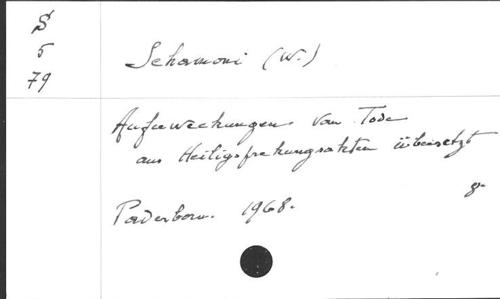 S
5
79
Schamoni (W.)
Auferweckungen von Tode
aus Heiligsprechungsakten übersetzt
Paderborn. 1968.
8.